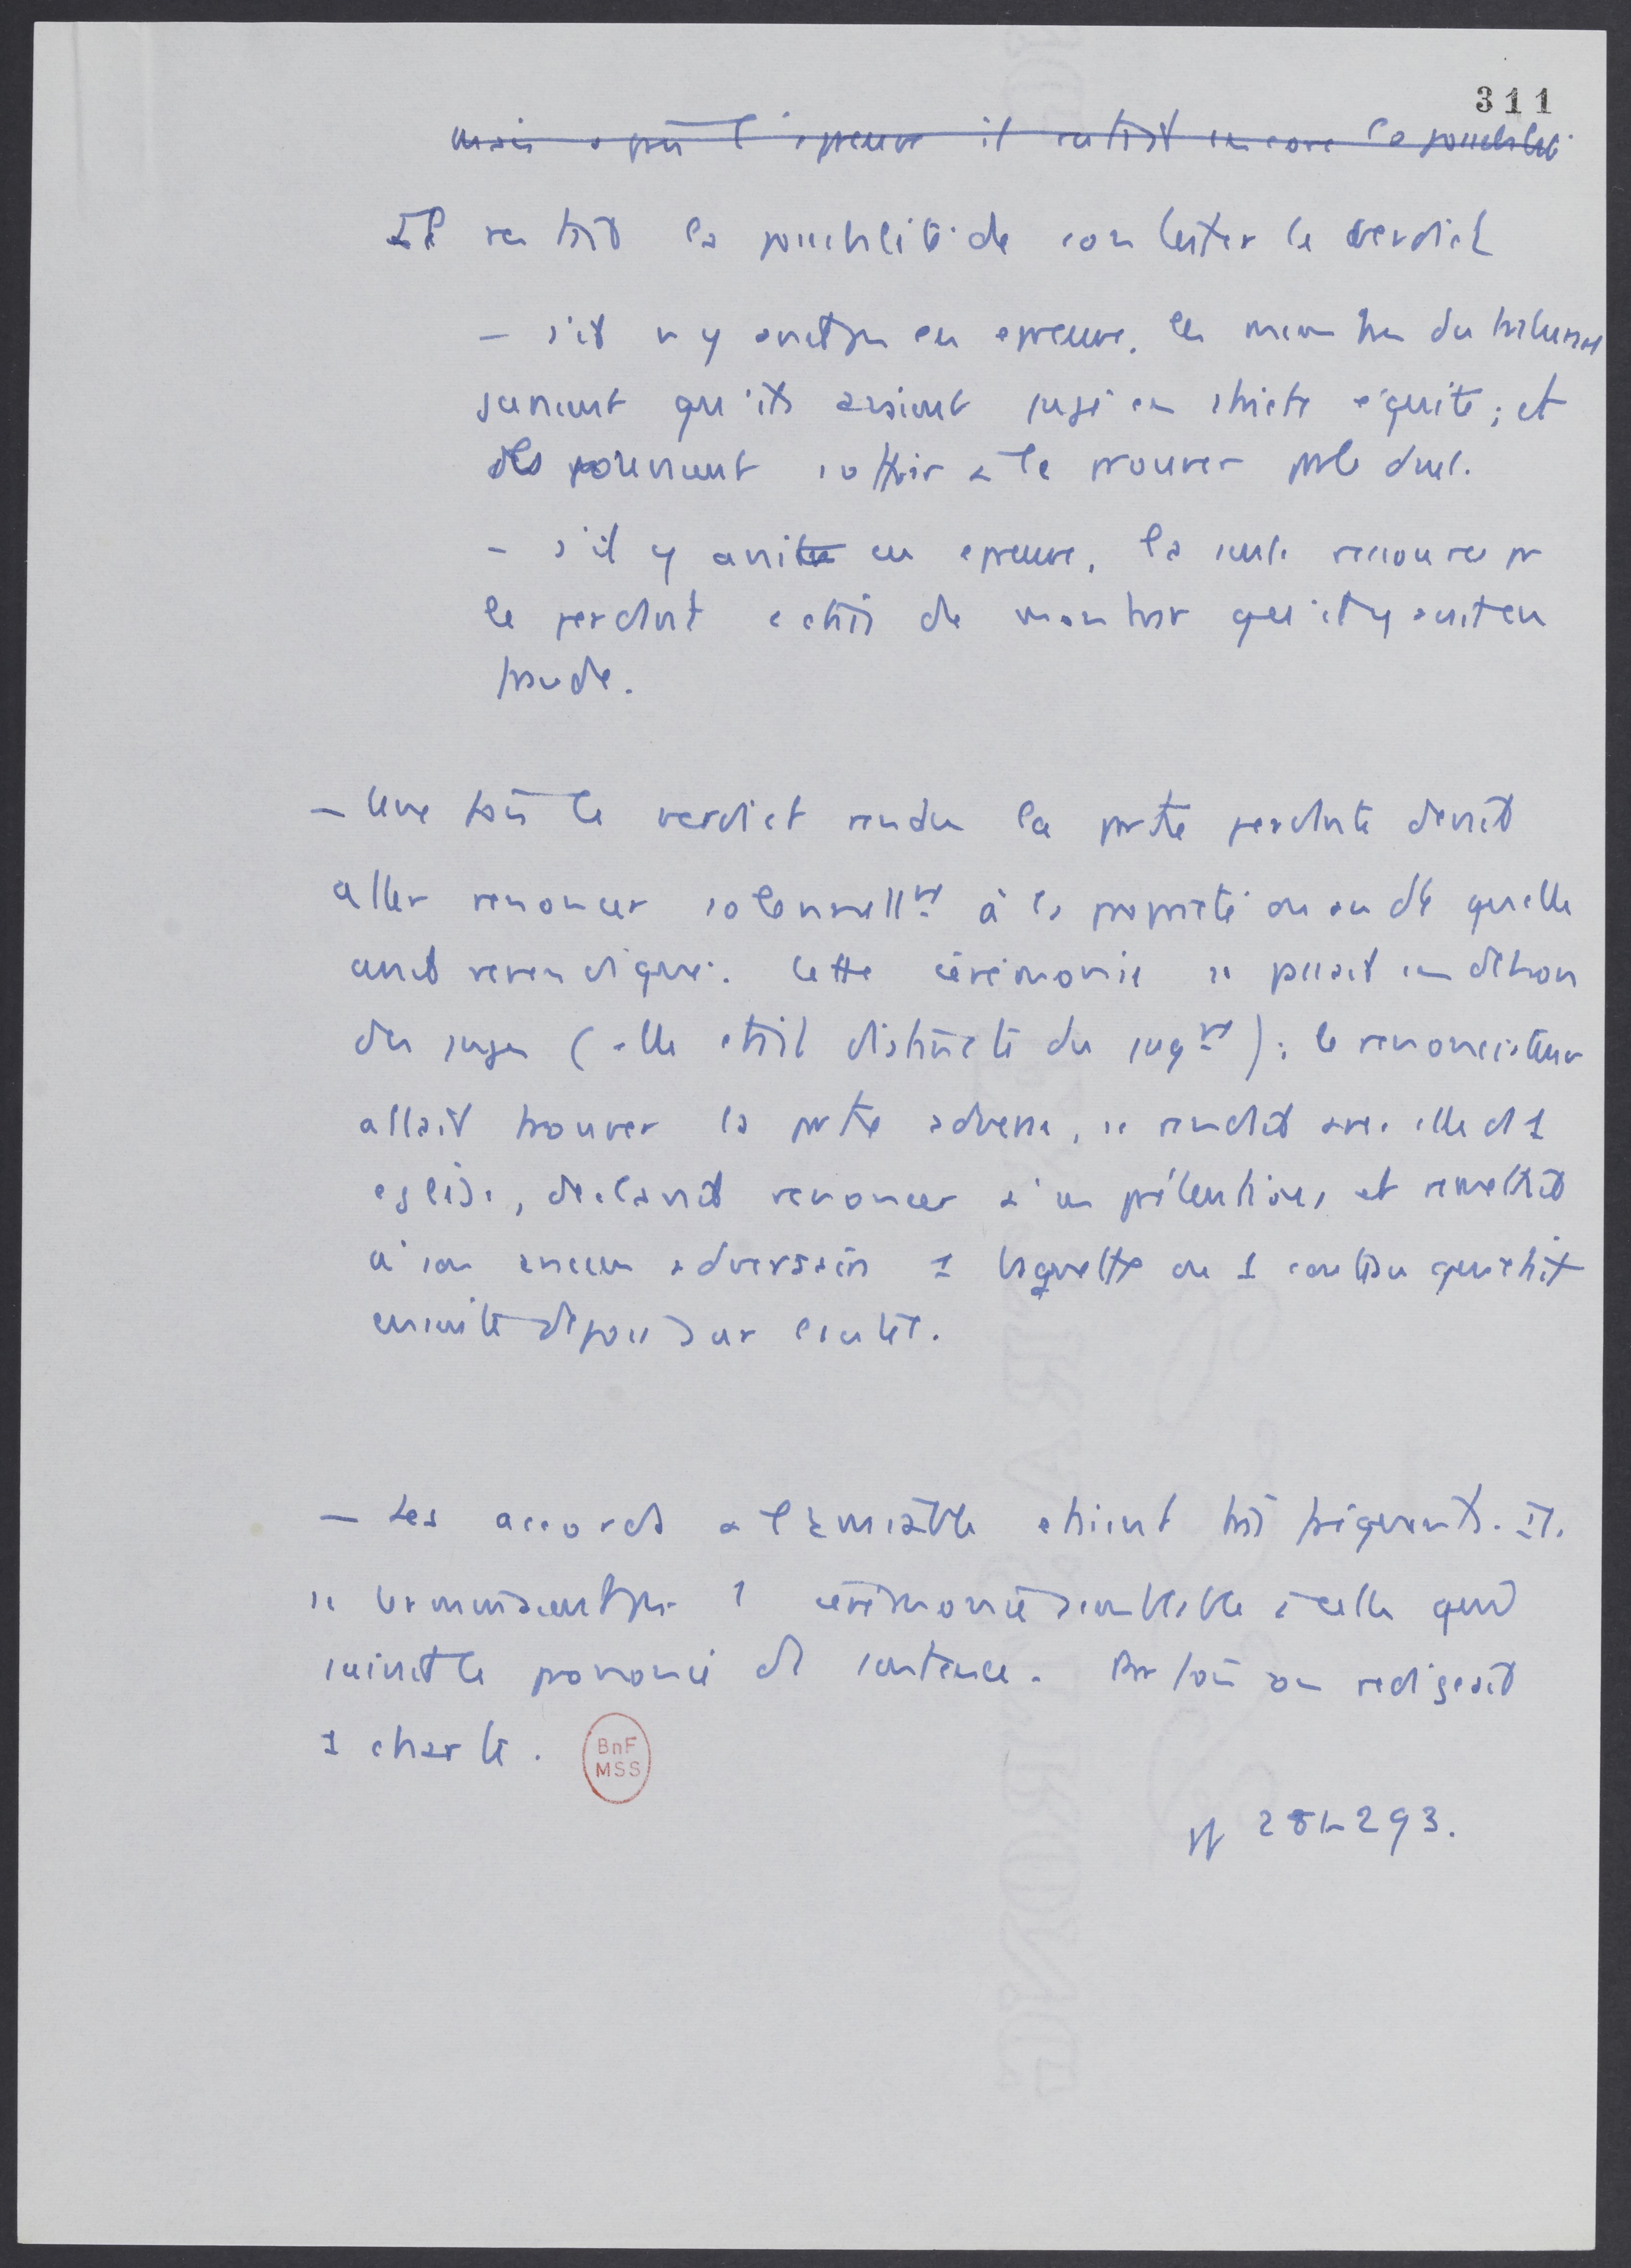 311
mais après l'épreuve il restait encore la possibilité
Il restait la possibilité de contester le verdict
– s'il n'y avait pas eu épreuve, les membres du tribunal
juraient qu'ils avaient jugé en stricte équité ; et
ils pouvaient s'offrir à le prouver par le duel.
– s'il y avait eu épreuve, la seule ressource pr
le perdant était de montrer qu'il y avait eu
fraude.
– Une fois le verdict rendu la partie perdante devait
aller renoncer solennellt à la propriété ou au dt qu'elle
avait revendiqué. Cette cérémonie se passait en dehors
des juges (elle était distincte du jugt) : le renonciateur
allait trouver la partie adverse, se rendait avec elle ds 1
église, déclarait renoncer à ses prétentions et remettait
à son ancien adversaire 1 baguette ou 1 couteau qui était
ensuite déposé sur l'autel.
– Les accords à l'amiable étaient très fréquents. Ils
se terminaient par 1 cérémonie semblable à celle qui
suivait le prononcé de sentence. Parfois on rédigeait
1 charte.
BnF
MSS
281-293.